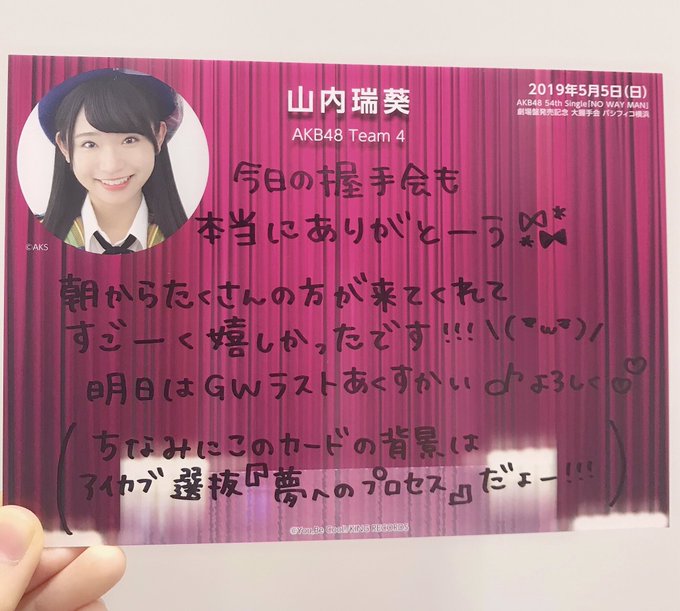 山内瑞葵
AKB48 Team 4
2019年5月5日(日)
AKB48 54th Single「NO WAY MAN」
劇場盤発売記念 大握手会 パシフィコ横浜
©AKS
今日の握手会も
本当にありがとーう
朝からたくさんの方が来てくれて
すごーく嬉しかったです!!!\(˘ω˘)/
明日はGWラストあくすかい♪よろしく♡♡
(ちなみにこのカードの背景は
アイカブ選抜『夢へのプロセス』だょー!!!)
©You,Be Cool!/KING RECORDS